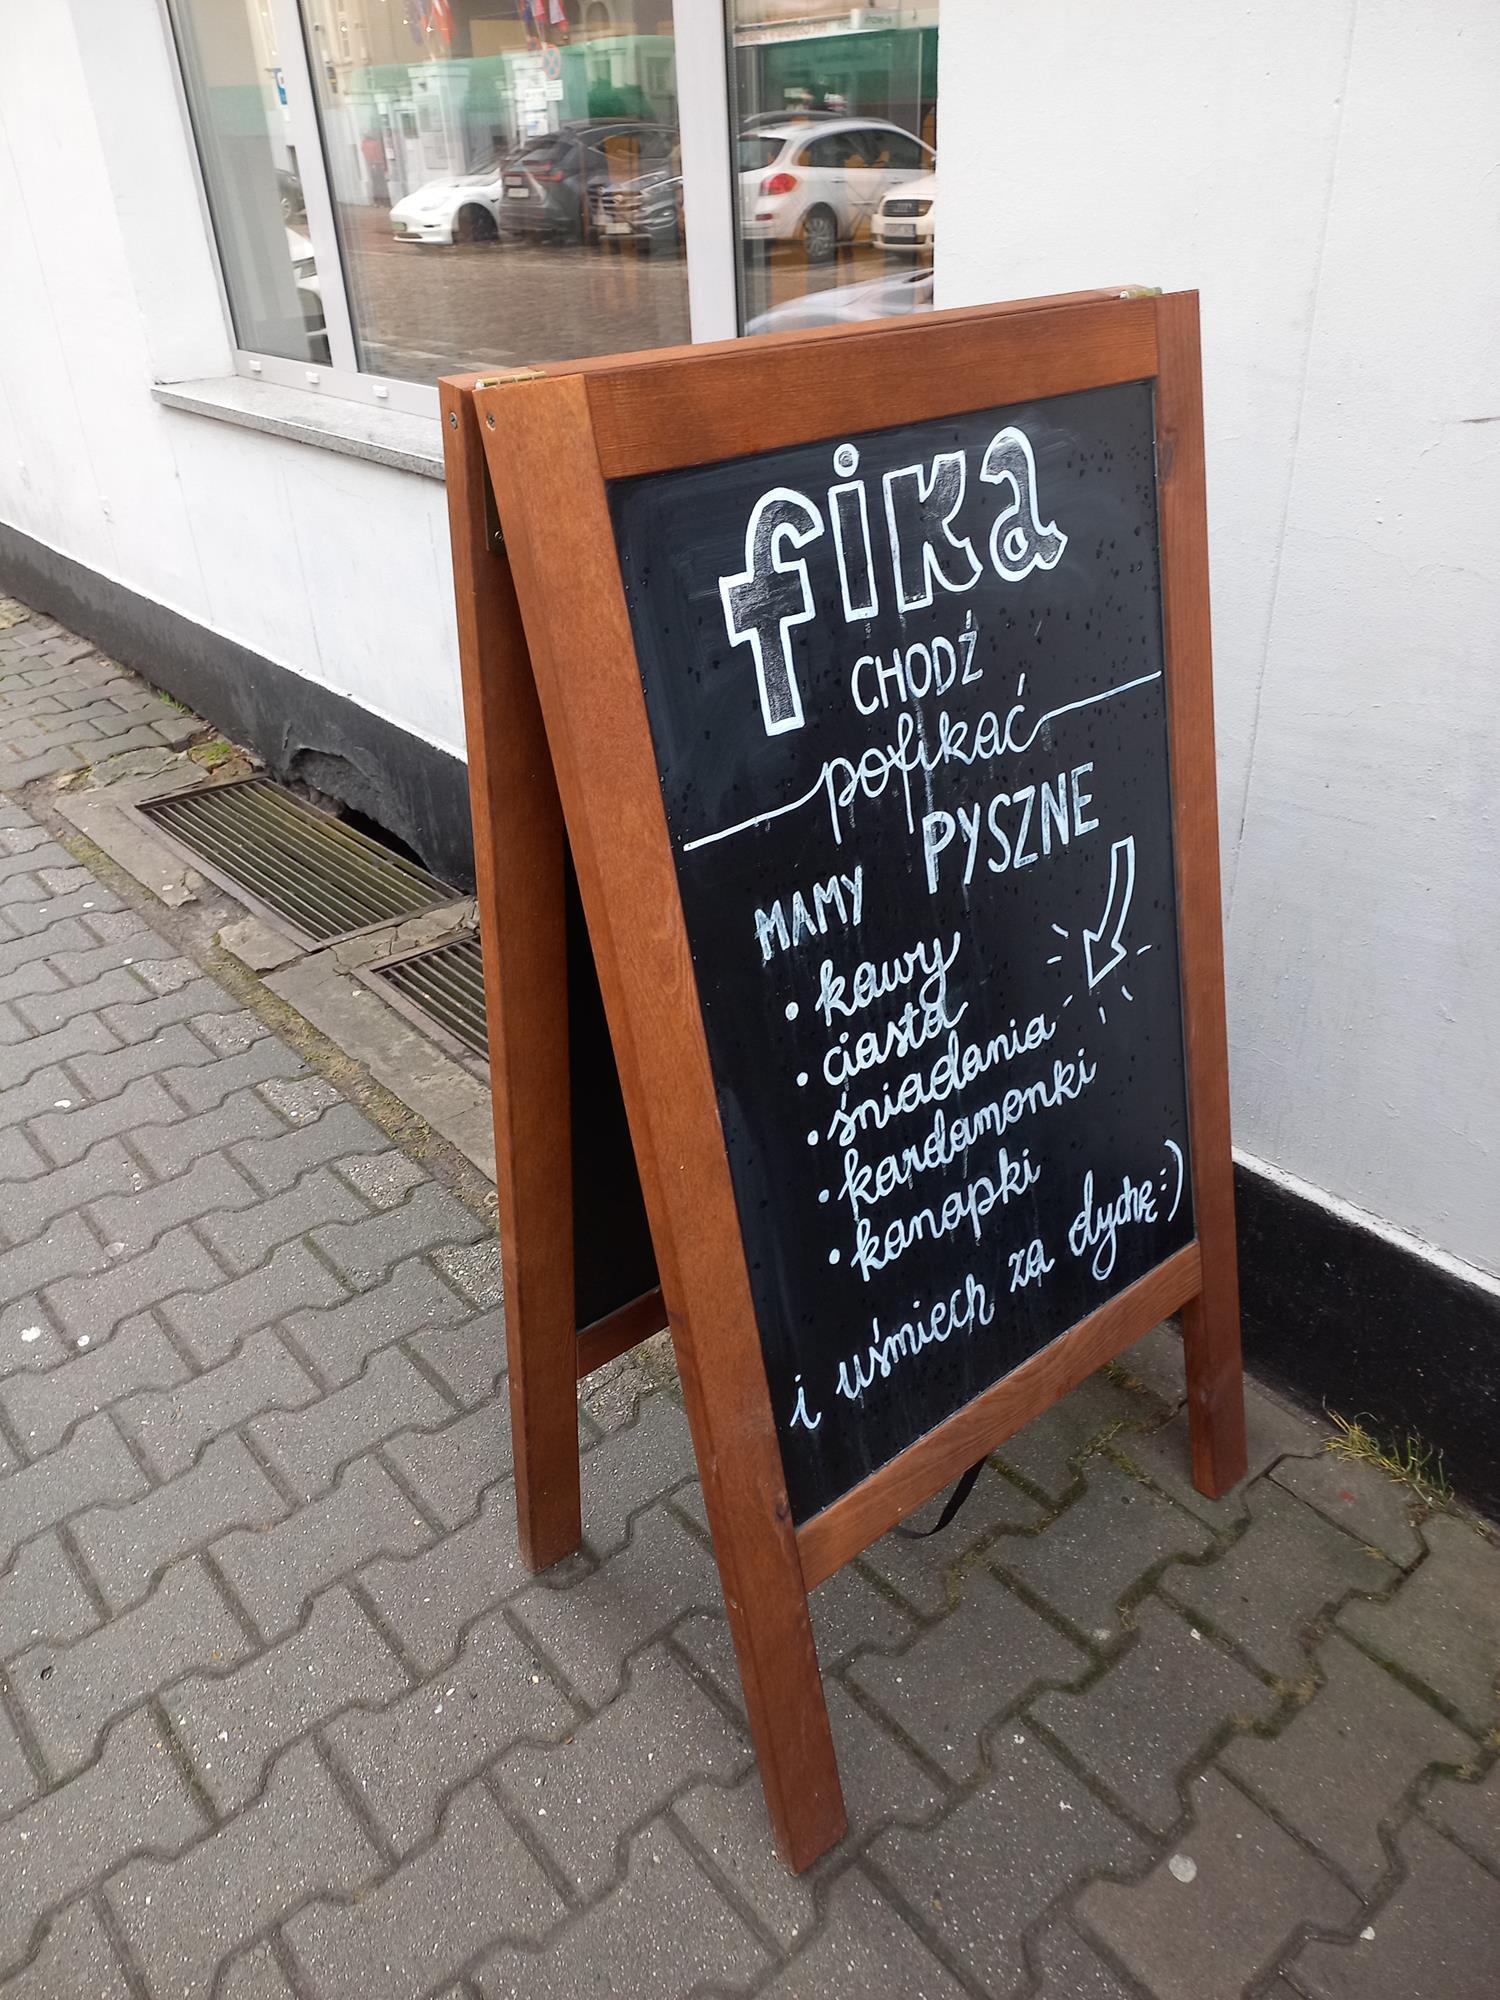 fika
CHODŹ
pofikać
MAMY PYSZNE
• kawy
• ciasta
• śniadania
• kardamonki
• kanapki
i uśmiech za dychę :)